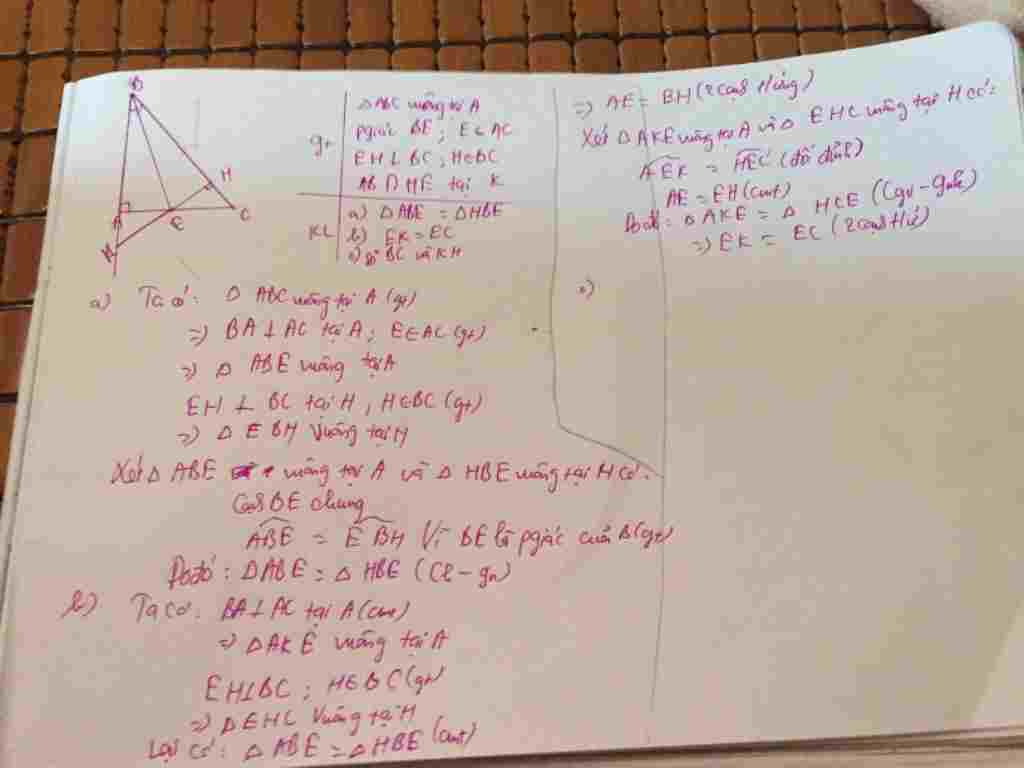 B
H
A
E
C
K
gt
△ABC vuông tại A
pgiác BE; E∈AC
EH⊥BC; H∈BC
AB∩HE tại K
KL
a) △ABE = △HBE
b) EK = EC
c) BC và KH
a) Ta có: △ABC vuông tại A (gt)
=) BA⊥AC tại A; E∈AC (gt)
=) △ABE vuông tại A
EH⊥BC tại H, H∈BC (gt)
=) △EBH vuông tại H
Xét △ABE vuông tại A và △HBE vuông tại H có:
Cạnh BE chung
ABE = EBH Vì BE là pgiác của B (gt)
Do đó: △ABE = △HBE (Ch-gn)
b) Ta có: BA⊥AC tại A (cmt)
=) △AKE vuông tại A
EH⊥BC; H∈BC (gt)
=) △EHC Vuông tại H
Lại có: △ABE = △HBE (cmt)
=) AE = BH (2 cạnh tứ)
Xét △AKE vuông tại A và △EHC vuông tại H có:
AEK = HEC (đối đỉnh)
AE = EH (cmt)
Do đó: △AKE = △HCE (Cgv-gnk)
=) EK = EC (2 cạnh tứ)
c)